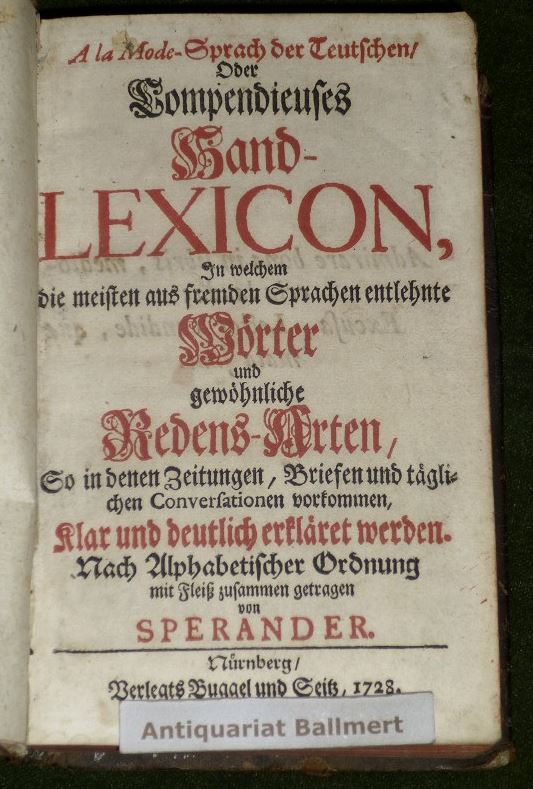 A la Mode-Sprach der Teutschen/
Oder
Compendieuses
Hand-
LEXICON,
In welchem
die meisten aus fremden Sprachen entlehnte
Wörter
und
gewöhnliche
Redens-Arten,
So in denen Zeitungen, Briefen und tägli-
chen Conversationen vorkommen,
Klar und deutlich erkläret werden.
Nach Alphabetischer Ordnung
mit Fleiß zusammen getragen
von
SPERANDER.
Nürnberg/
Verlegts Buggel und Seitz, 1728.
Antiquariat Ballmert